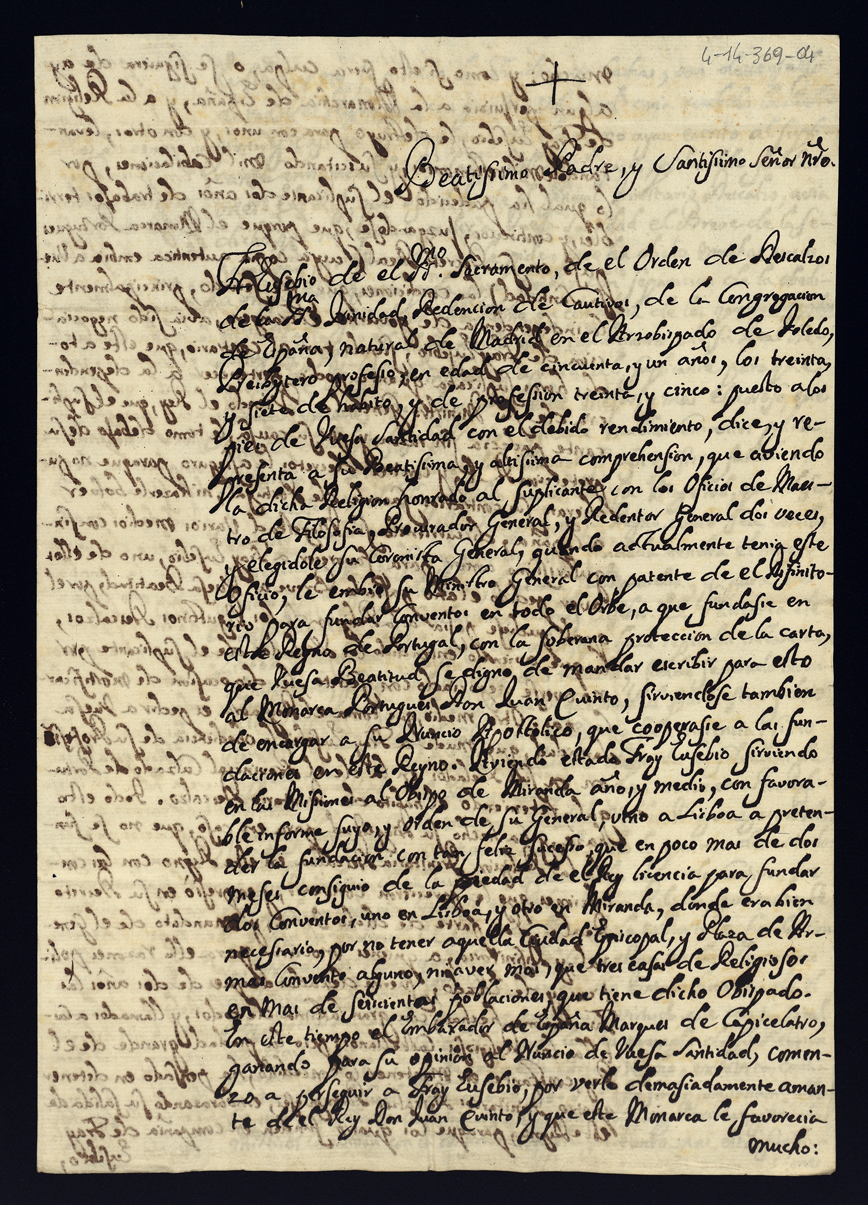 4-14-369-04
Beatissimo Padre, y Santissimo Señor Nro.
Fray Eusebio de el Smo. Sacramento, de el Orden de Descalzos
de la Sma Trinidad, Redencion de Cautivos, de la Congregacion
de España, natural de Madrid en el Arzobispado de Toledo,
Presbytero professo, en edad de cincuenta, y un años, los treinta,
y siete de habito, y de profession treinta, y cinco: puesto a los
pies de Vuesa Santidad con el debido rendimiento, dice, y re-
presenta a su Beatissima, y altissima comprehension, que aviendo
la dicha Religion honrado al suplicante con los Oficios de Maes-
tro de Filosofia, Procurador General, y Redentor General dos veces,
y elegidole su Coronista General, quando actualmente tenia este
Oficio, le embio su Ministro General con patente de el Difinito-
rio para fundar Conventos en todo el Orbe, a que fundasse en
este Reyno de Portugal, con la soberana proteccion de la carta,
que Vuesa Beatitud se digno de mandar escribir para esto
al Monarca Portugues Don Juan Quinto, sirviendose tambien
de encargar a su Nuncio Apostolico, que cooperasse a las fun-
daciones en este Reyno. Aviendo estado Fray Eusebio sirviendo
en las Missiones al Obispo de Miranda año, y medio, con favora-
ble informe suyo, y orden de su General, vino a Lisboa a preten-
der la fundacion con tan feliz sucesso, que en poco mas de dos
meses consiguio de la piedad de el Rey licencia para fundar
dos Conventos, uno en Lisboa, y otro en Miranda, donde era bien
necessario, por no tener aquella Ciudad Episcopal, y Plaza de Ar-
mas Convento alguno, ni aver mas, que tres casas de Religiosos
en mas de seiscientas poblaciones, que tiene dicho Obispado.
En este tiempo el Embaxador de España Marques de Capicelatro,
ganando para su opinion al Nuncio de Vuesa Santidad, comen-
zo a perseguir a Fray Eusebio, por verle demasiadamente aman-
te de el Rey Don Juan Quinto, y que este Monarca le favorecia
mucho: